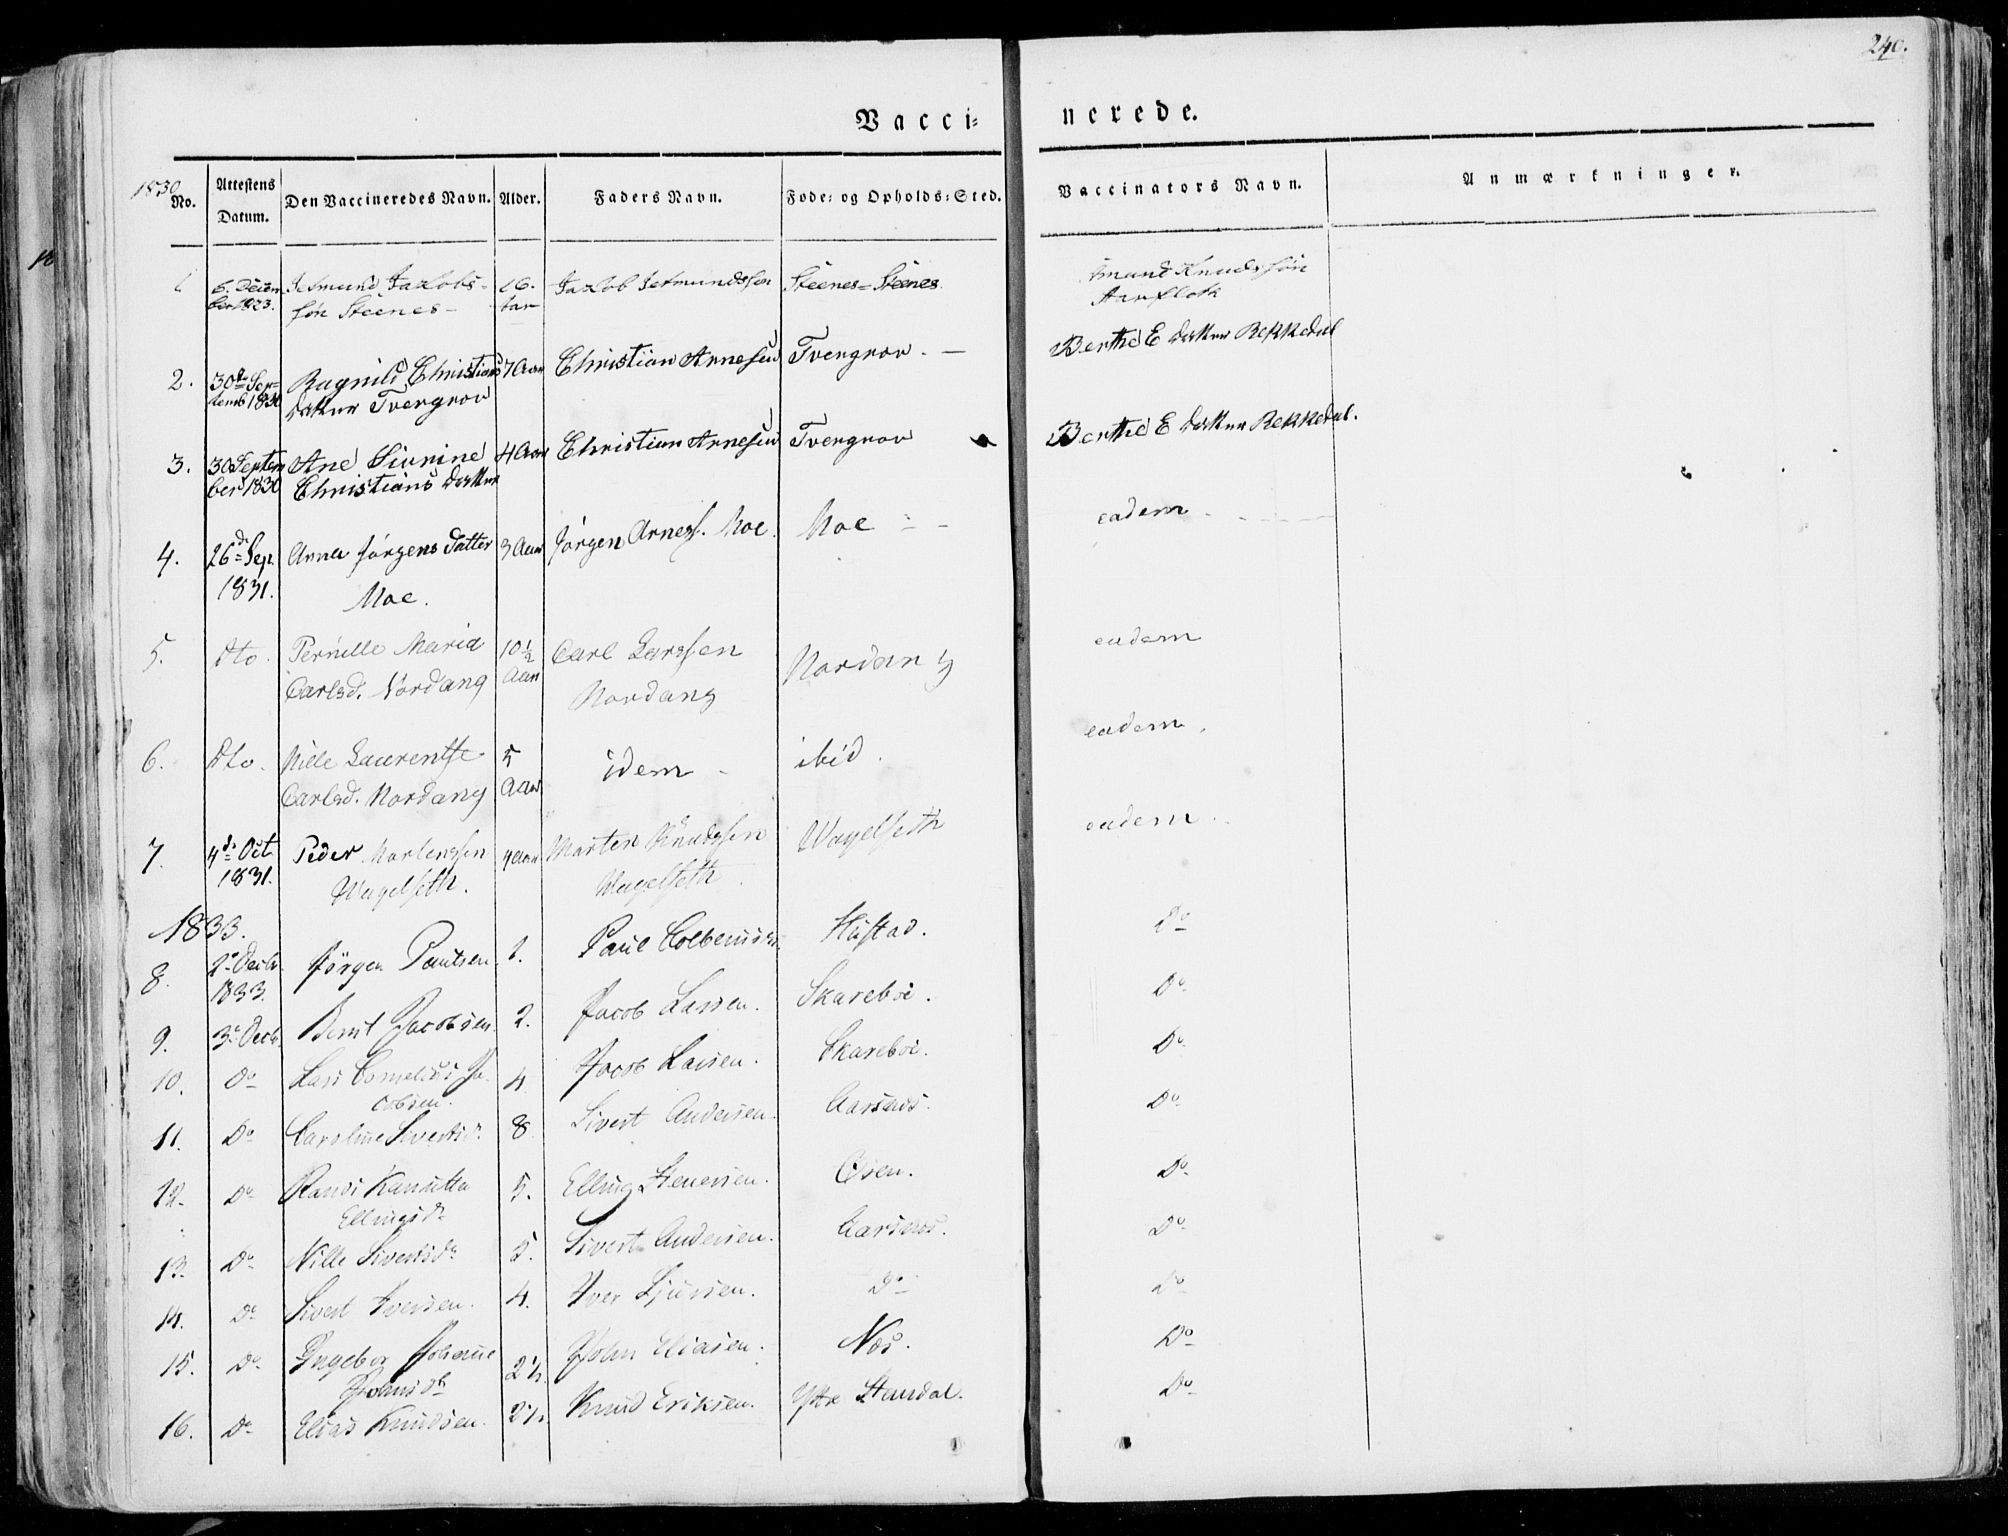 240.
Vacci= nerede.
1830
No. Attestens Datum. Den Vaccineredes Navn. Alder. Faders Navn. Føde= og Opholds=Sted. Vaccinators Navn. Anmærkninger.
6. Decem
ber 1823. Jetmund Jakobs=
søn Steenes - 16. Aar Jakob Jetmundssøn Steenes = Steenes Knudssøn
Aarfloth
2. 30te Sep=
temb 1830 Ragnild Christians
datter Tvergrov 7 Aar Christian Arnesen Tvergrov. — Berthe E datter Rekkedal
3. 30 Septem
ber 1830 Ane Sivrine
Christians datter 4 Aar Christian Arnesen Tvergrov Berthe E datter Rekkedal.
4. 26de Sep.
1831. Anna Jørgens Datter
Moe. 3 Aar Jørgen Arness. Moe. Moe eadem
5. Dto. Pernille Maria
Carlsd. Nordang 10 1/2
Aar Carl Larssen
Nordang Nordang eadem
6. Dto. Nille Laurentse
Carlsd. Nordang 5
Aar idem ibid. eadem.
7. 4de Oct.
1831. Peder Mortenssen
Wagelseth. 4 Aar Morten Knudssen
Wagelseth. Wagelseth eadem
1833.
8. 2e Decb.
1833. Jörgen Paulsen 1. Paul Hustad. Do
9. 3e Decb. Bernt Jacobsen 2. Jacob Larsen. Skareboe. Do
10. Do Lars Cornelius Ja-
cobsen. 4 Jacob Larsen. Skareboe. Do
11. Do Caroline Sivertsd. 8 Sivert Andersen. Aarsnes. Do
12. Do Randi Kanutta
Ellingsdr 5. Elling Stenersen. Osen. Do
13. Do Nille Sivertsdr 5. Sivert Andersen. Aarsnes. Do
14. Do Sivert Iversen. 4. Iver Do Do
15. Do Ingebor Johanne
Johnsdr 2 1/2. John Eliasen. Nes. Do
16. Do Elias Knudsen. 2 1/2 Knud Eriksen. Ytre Standal. Do